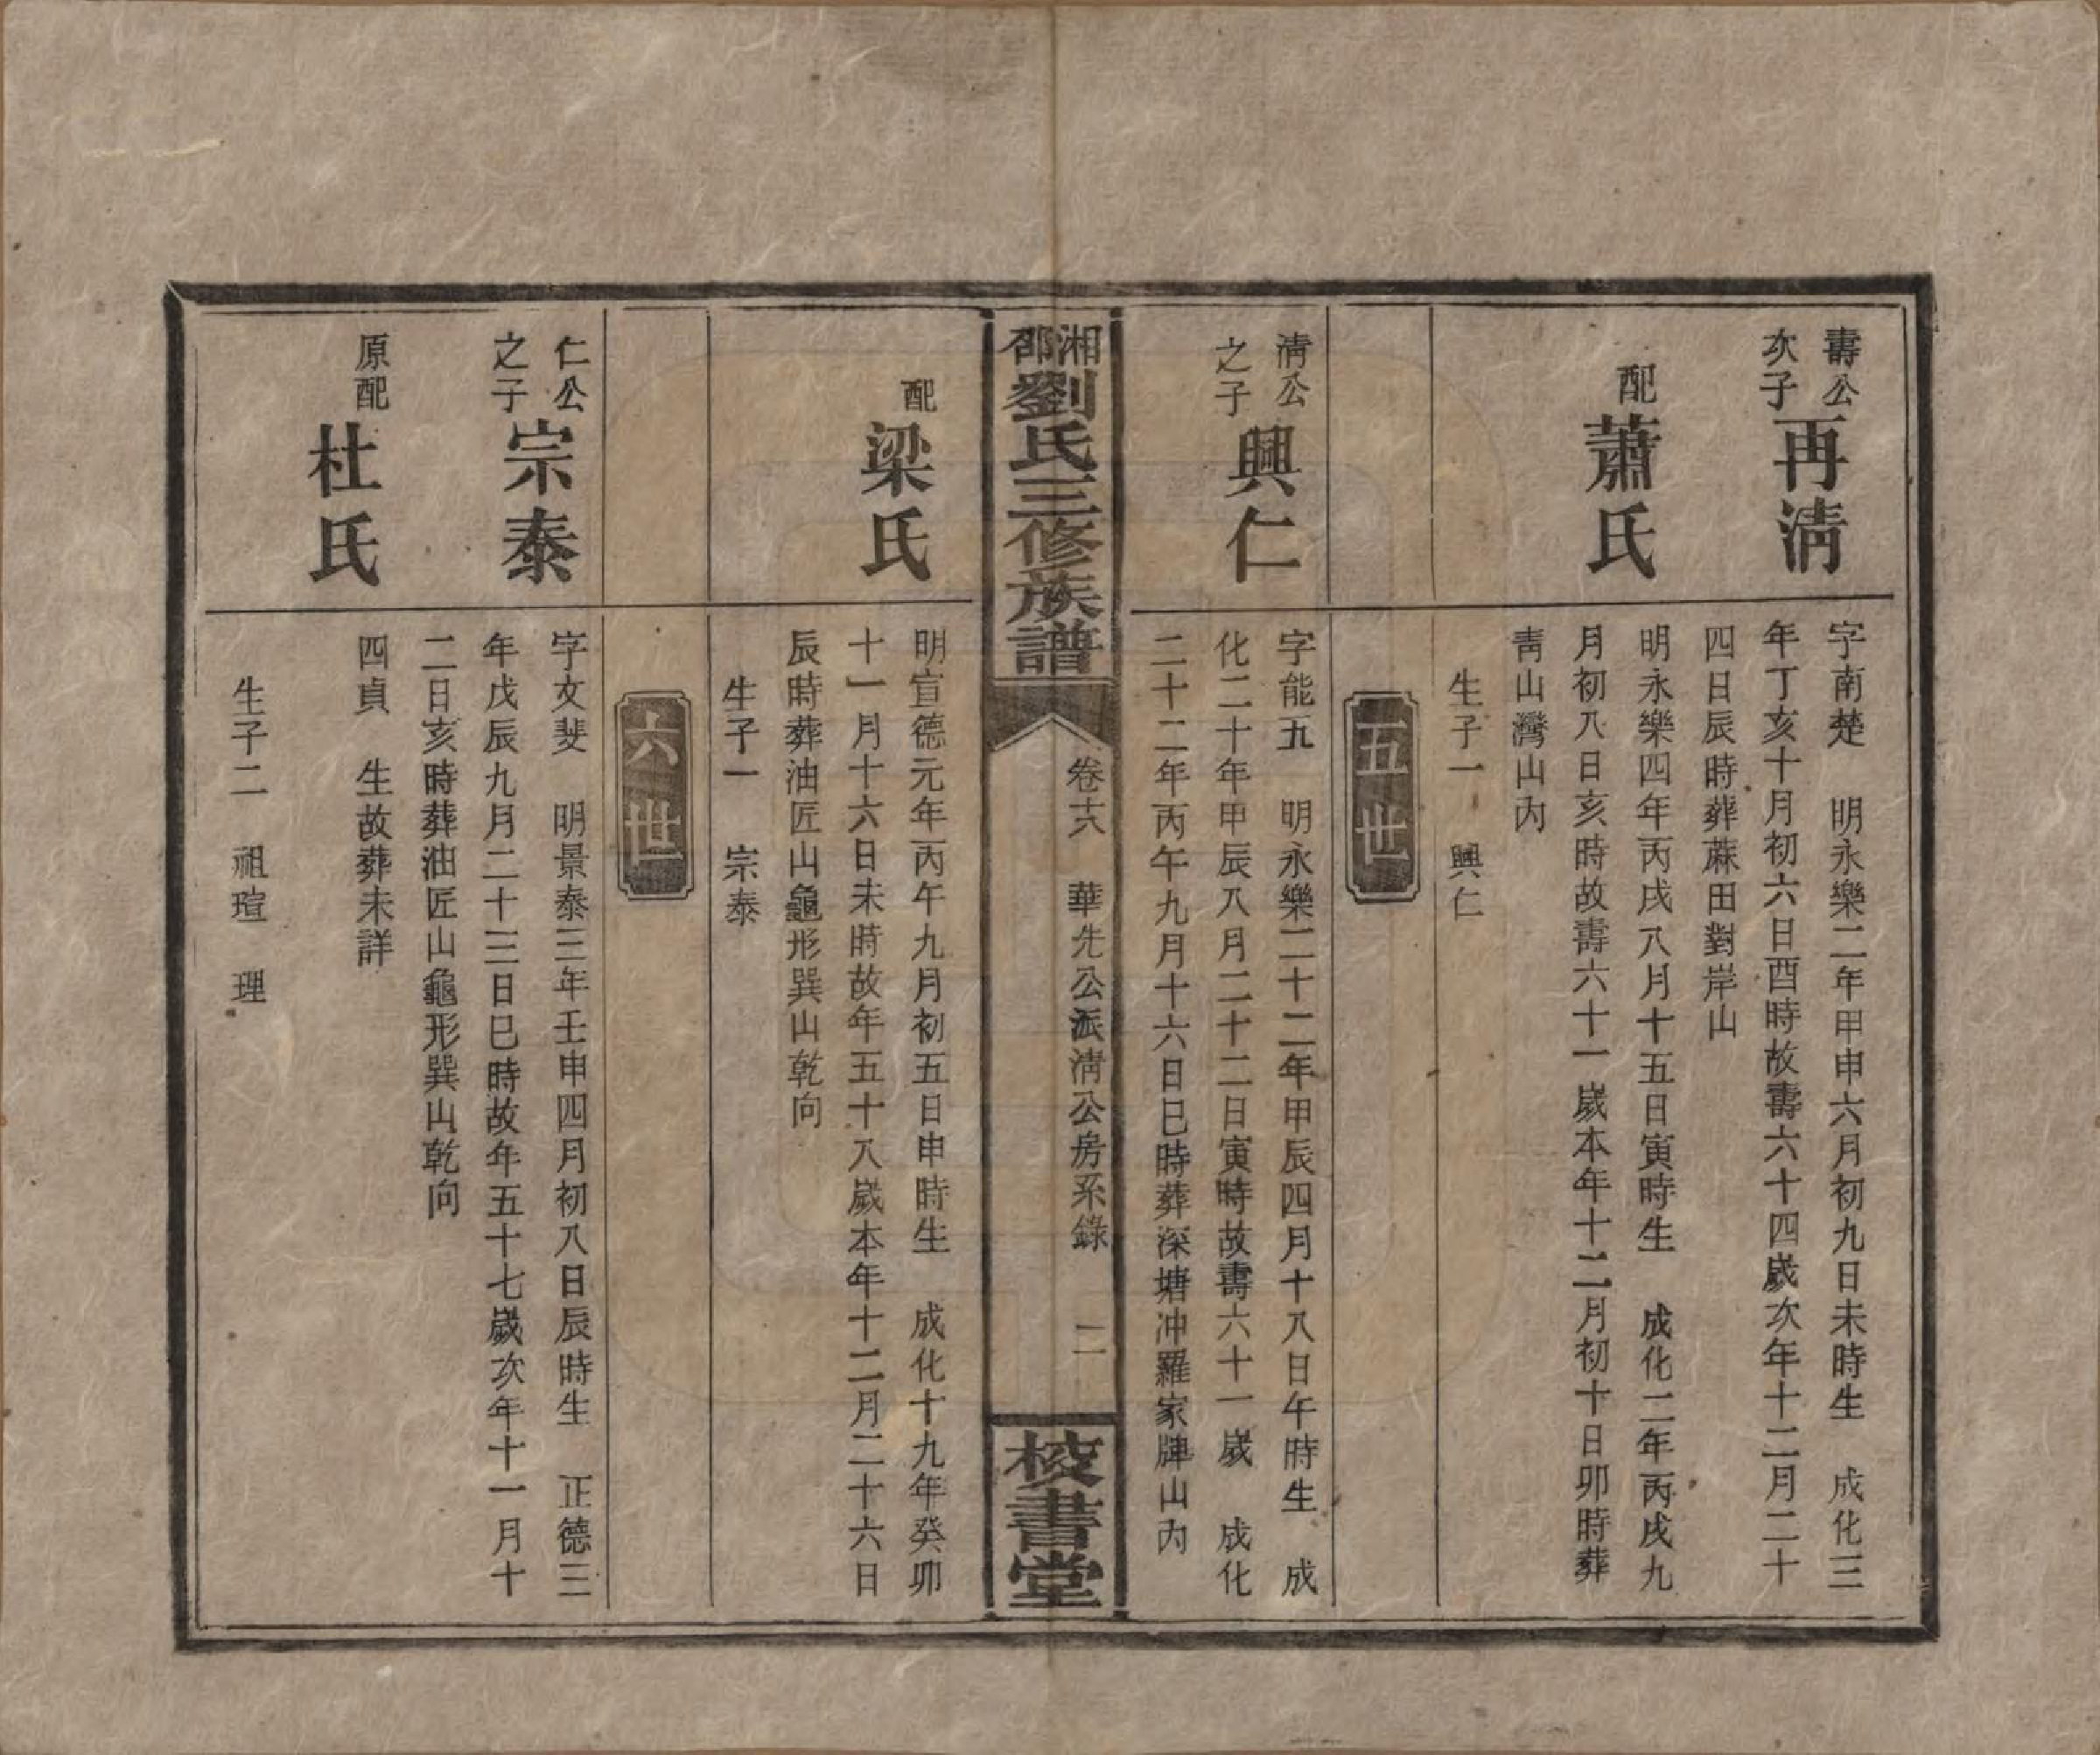 壽公
次子
再淸
字南楚　明永樂二年甲申六月初九日未時生　成化三
年丁亥十月初六日酉時故壽六十四歲次年十二月二十
四日辰時葬蔴田對岸山
配
蕭氏
明永樂四年丙戌八月十五日寅時生　成化二年丙戌九
月初八日亥時故壽六十一歲本年十二月初十日卯時葬
靑山灣山內
生子一　興仁
五世
淸公
之子
興仁
字能五　明永樂二十二年甲辰四月十八日午時生　成
化二十年甲辰八月二十二日寅時故壽六十一歲　成化
二十二年丙午九月十六日巳時葬深塘冲羅家牌山內
湘邵劉氏三修族譜
卷十六　華先公派淸公房系錄　二
校書堂
配
梁氏
明宣德元年丙午九月初五日申時生　成化十九年癸卯
十一月十六日未時故年五十八歲本年十二月二十六日
辰時葬油匠山龜形巽山乾向
生子一　宗泰
六世
仁公
之子
宗泰
字文斐　明景泰三年壬申四月初八日辰時生　正德三
年戊辰九月二十三日巳時故年五十七歲次年十一月十
二日亥時葬油匠山龜形巽山乾向
原配
杜氏
四貞　生故葬未詳
生子二　祖瑄　理